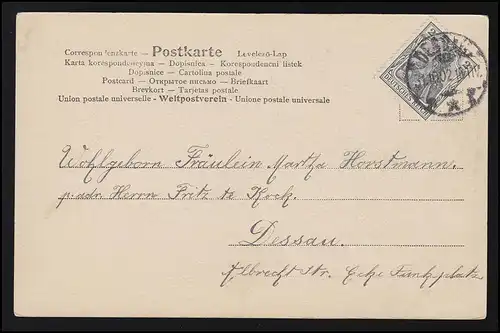 Correspondenzkarte – Postkarte – Levelező-Lap
Karta korespondencyjna – Dopisnica – Korespondenční lístek
Dopisnice – Cartolina postale
Postcard – Открытое письмо – Briefkaart
Brevkort – Tarjetas postale
Union postale universelle – Weltpostverein – Unione postale universale
DEUTSCHES REICH
Wohlgeborn Fräulein Martha Horstmann.
p. adr. Herrn Fritz te Kock.
Dessau.
Albrecht Str. Ecke Funkplatz